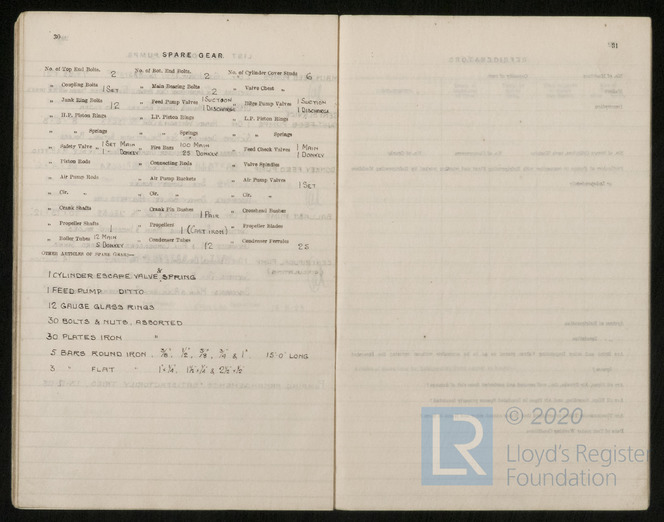 30
SPARE GEAR.
No. of Top End Bolts. 2 No. of Bot. End Bolts. 2 No. of Cylinder Cover Studs 6
„ Coupling Bolts 1 SET „ Main Bearing Bolts 2 „ Valve Chest „
„ Junk Ring Bolts 12 „ Feed Pump Valves 1 SUCTION 1 DISCHARGE „ Bilge Pump Valves 1 SUCTION 1 DISCHARGE
„ H.P. Piston Rings „ I.P. Piston Rings „ L.P. Piston Rings
„ „ Springs „ „ Springs „ „ Springs
„ Safety Valve „ 1 SET MAIN 1 - DONKEY „ Fire Bars 100 MAIN 25 DONKEY „ Feed Check Valves 1 MAIN 1 DONKEY
„ Piston Rods „ Connecting Rods „ Valve Spindles
„ Air Pump Rods „ Air Pump Buckets „ Air Pump Valves 1 SET
„ Cir. „ „ Cir. „ „ Cir. „
„ Crank Shafts „ Crank Pin Bushes 1 PAIR „ Crosshead Bushes
„ Propeller Shafts 1 „ Propellers 1 (CAST IRON) „ Propeller Blades
„ Boiler Tubes 12 MAIN 5 DONKEY „ Condenser Tubes 12 „ Condenser Ferrules 25
OTHER ARTICLES OF SPARE GEAR:—
1 CYLINDER ESCAPE VALVE & SPRING
1 FEED PUMP DITTO
12 GAUGE GLASS RINGS
30 BOLTS & NUTS, ASSORTED
30 PLATES IRON „
5 BARS ROUND IRON 15' 0" LONG
3 „ FLAT „
31
© 2020
LR
Lloyd's Register
Foundation